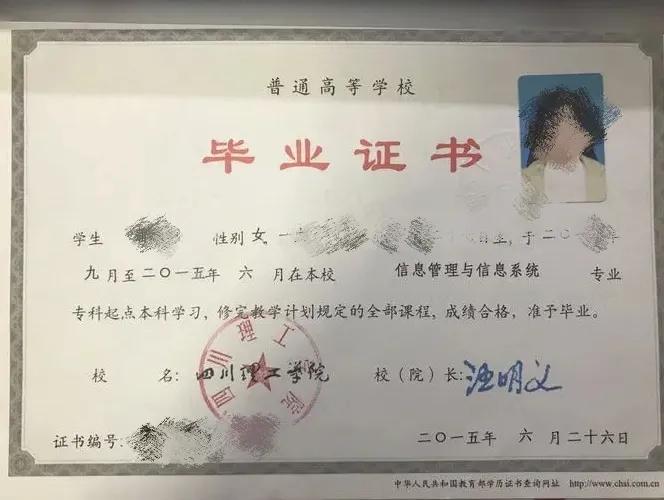 普通高等学校
毕业证书
学生 性别 女, 一 日生, 于二〇 年
九月至二〇一五年 六 月在本校 信息管理与信息系统 专业
专科起点本科学习, 修完教学计划规定的全部课程, 成绩合格, 准予毕业。
校 名: 四川理工学院 校(院)长: 
证书编号: 二〇一五年 六 月二十六日
中华人民共和国教育部学历证书查询网址 http://www.chsi.com.cn